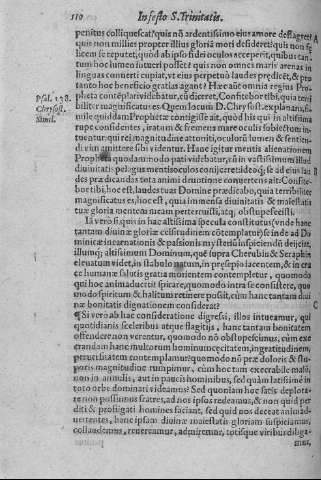 110 In festo S. Trinitatis.
penitus colliquescat? quis nõ ardentissimo eius amore deflagret?
quis non millies propter illius gloriã mori desideret? quis non fe
licem se reputet, quòd ab ipso fidei oculos acceperit, quibus tan-
tum hoc lumen intueri posset? quis non omnes maris arenas in
linguas conuerti cupiat, vt eius perpetuò laudes prędicet, & pro
tanto hoc beneficio gratias agant? Hæc aũt omnia regius Pro-
pheta contẽplari videbatur, cũ diceret, Confitebor tibi, quia terri
Psal. 138. biliter magnificatus es. Quem locum D. Chrysost. explanans, si-
Chrysost.
Simil. mile quiddam Prophetæ contigisse ait, quod his qui in altissima
rupe considentes, iratum & fremens mare oculis subiectum in-
tuentur. qui rei magnitudine attoniti, oculorũ lumen & sentien-
di vim amittere sibi videntur. Hanc igitur mentis alienationem
Propheta quodammodo pati videbatur, cũ in vastissimum illud
diuinitatis pelagus mentis oculos conijceret: ideoq; se ad eius lau
des prædicandas tota animi deuotione conuertens ait: Confite-
bor tibi, hoc est, laudes tuas Domine prædicabo, quia terribiliter
magnificatus es, hoc est, quia immensa diuinitatis & maiestatis
tuæ gloria mentem meam perterruisti, atq; obstupefecisti.
Iã verò si quis in hac altissima specula constitutus (vnde hanc
tantam diuinæ gloriæ celsitudinem cõtemplatur) se inde ad Do
minicæ incarnationis & passionis mysteriũ inspiciendũ deijciat,
illumq; altissimum Dominum, quẽ supra Cherubin & Seraphin
eleuatum videt, in stabulo natum, in præsepio iacentem, & in cru
ce humanæ salutis gratia morientem contempletur, quomodo
qui hoc animaduertit spirare, quomodo intra se consistere, quo
modo spiritum & halitum retinere possit, cùm hanc tantam diui
næ bonitatis dignationem considerat?
¶ Si verò ab hac consideratione digressi, illos intueamur, qui
quotidianis sceleribus atque flagitijs, hanc tantam bonitatem
offendere non verentur, quomodo nõ obstupescimus, cùm exe
crandam hanc multorum hominum cęcitatem, ingratitudinem,
peruersitatem contemplamur? quomodo nõ præ doloris & stu-
poris magnitudine rumpimur, cùm hoc tam execrabile malũ,
non in animis, aut in paucis hominibus, sed quàm latissimè in
toto orbe dominari videamus? Sed quoniam hoc satis deplora-
re non possumus fratres, ad nos ipsos redeamus, & non quid per
diti & profligati homines faciant, sed quid nos deceat animad-
uertentes, hanc ipsam diuinæ maiestatis gloriam suspiciamus,
collaudemus, reuereamur, admiremur, totisque viribus diliga-
mus,